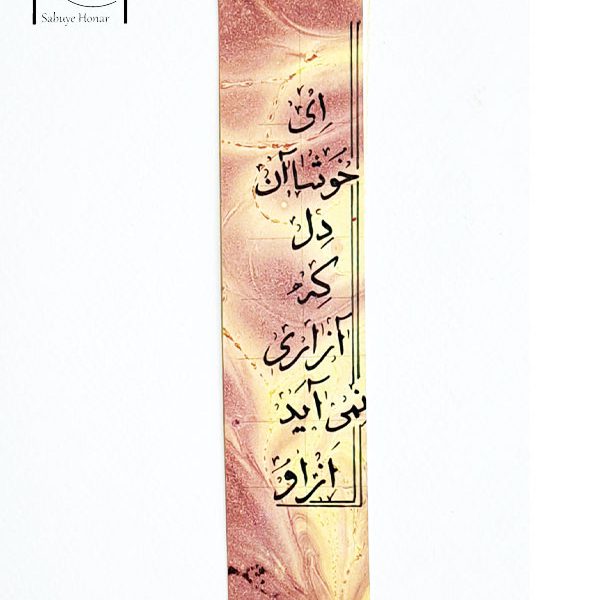 Sabuye Honar
اِی
خُوَشا آن
دِل
کِه
آزاری
نمی آیَد
اَز او